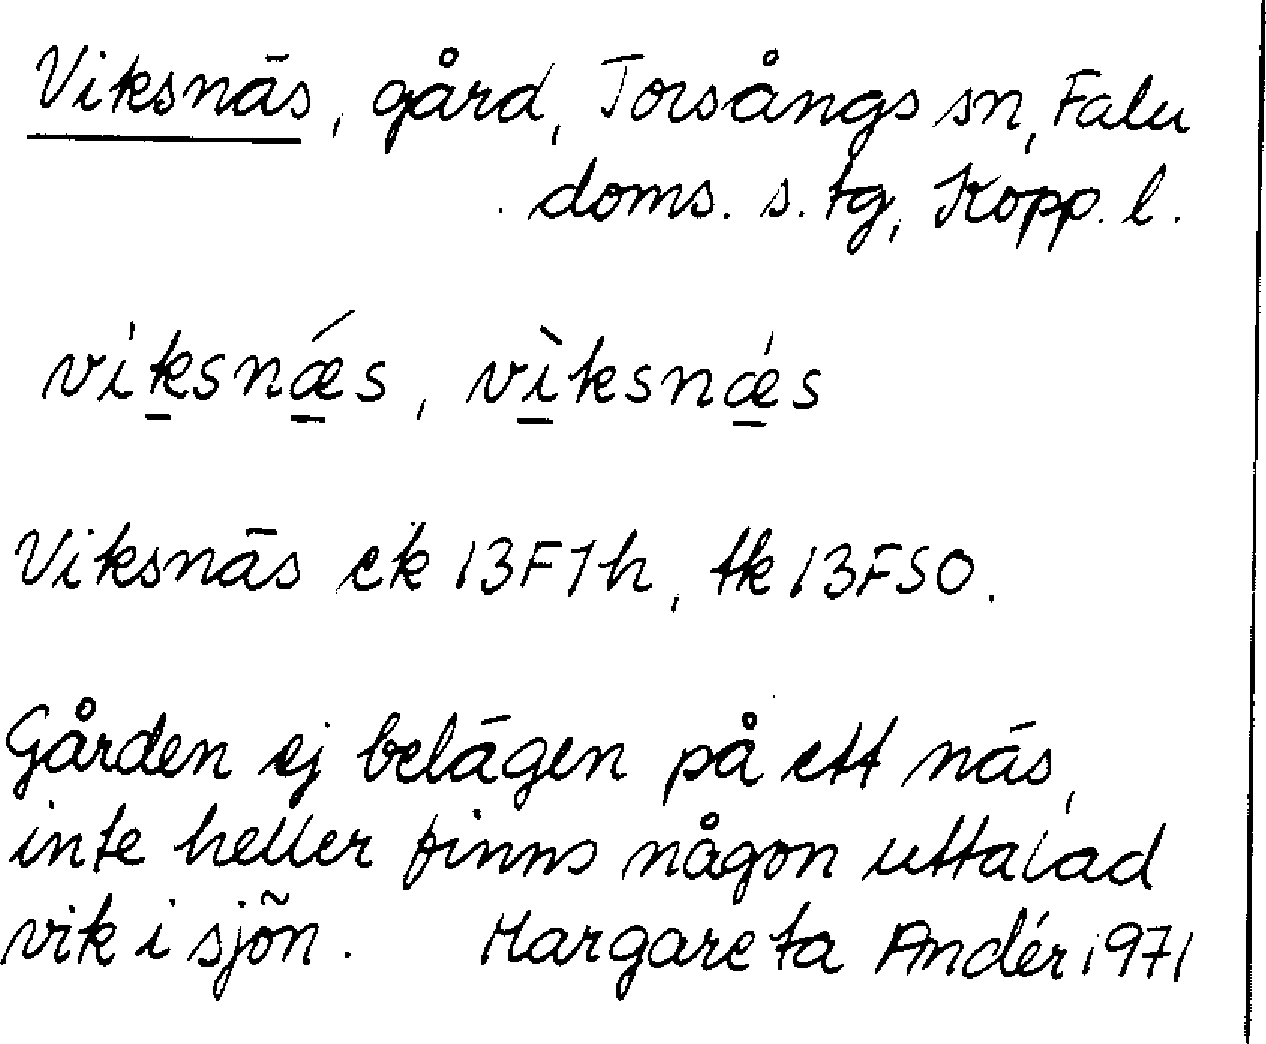 Viksnäs, gård, Torsångs sn, Falu
doms. s. tg, Kopp. l.
viksnǽs, vìksnǽs
Viksnäs ek 13F7h, tk 13FSO.
Gården ej belägen på ett näs,
inte heller finns någon uttalad
vik i sjön. Margareta Andér 1971